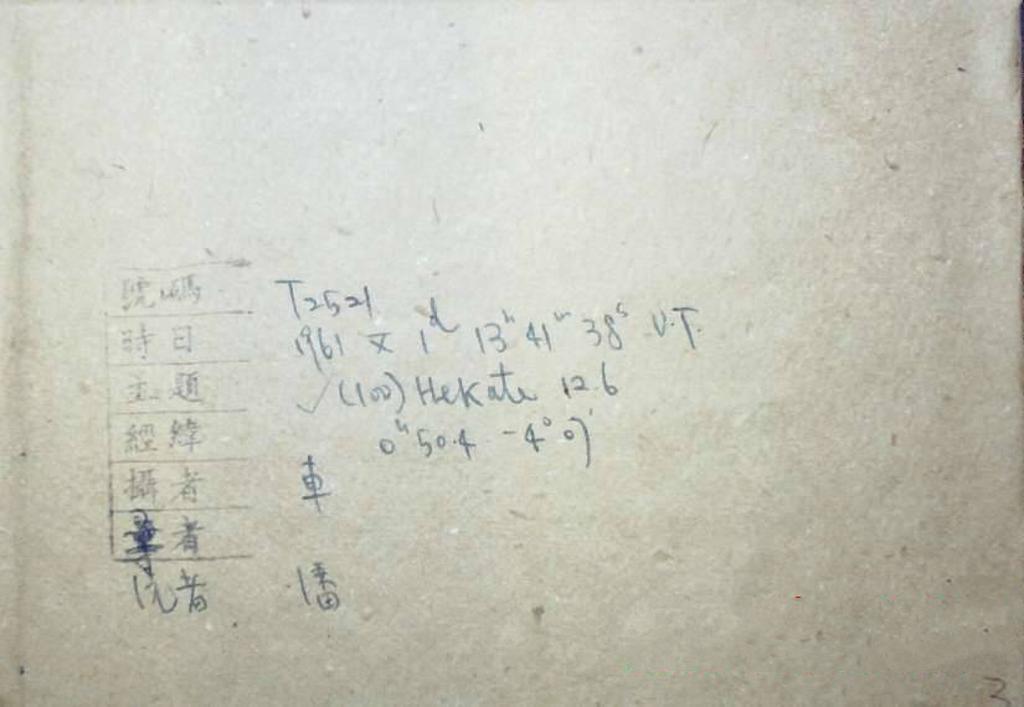 號碼 T2521
時日 1961 X 1ᵈ 13ʰ 41ᵐ 38ˢ U.T.
主題 ✓(100) Hekate 12.6
經緯 0ʰ 50.4 -4° 07'
攝者 車
者
洗者 潘
3